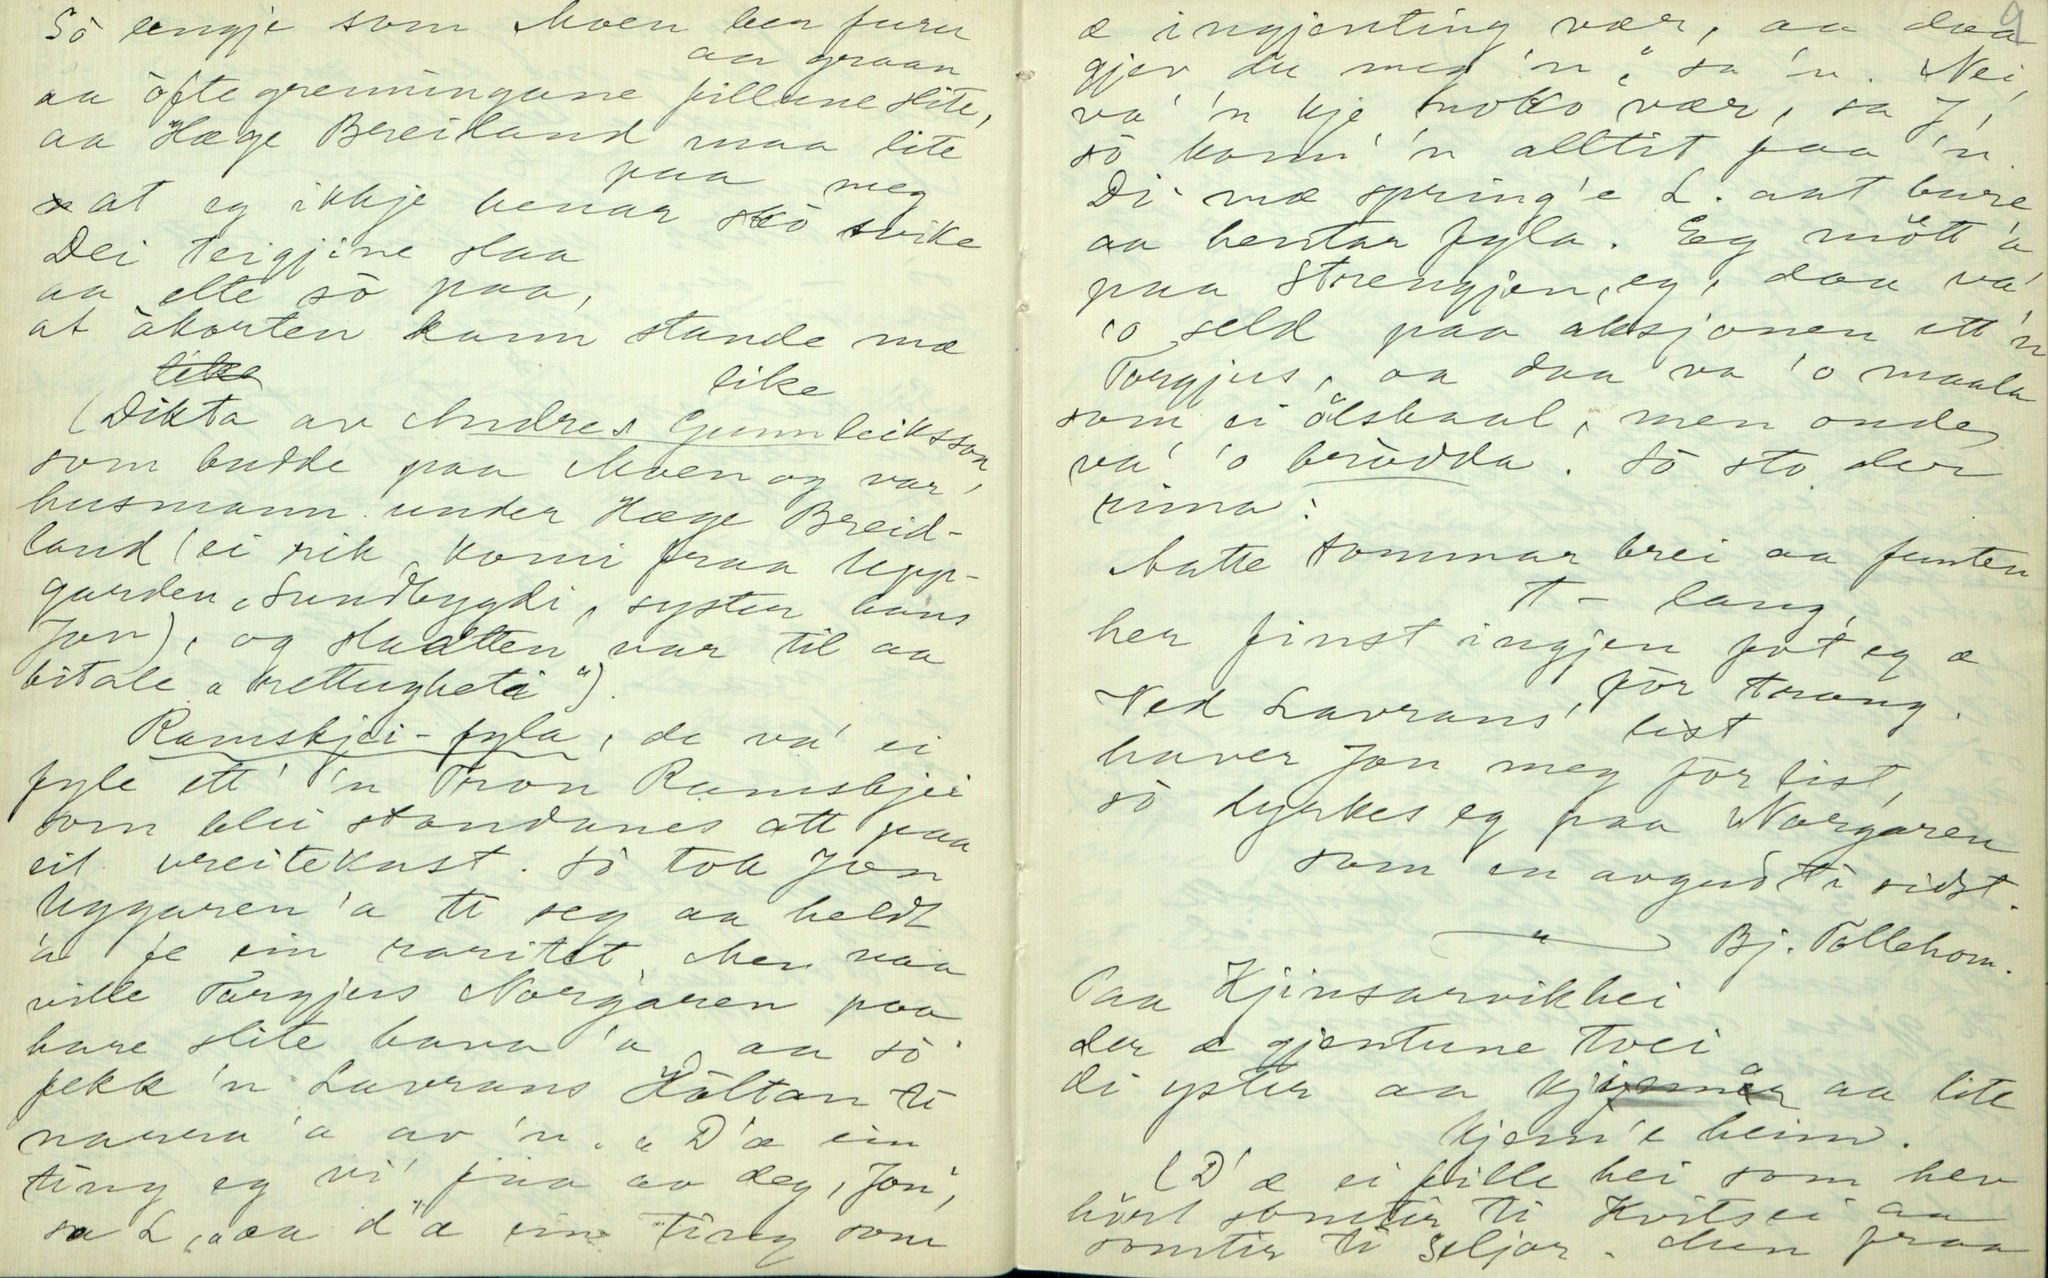 Så lengje som Moen ber furu
aa graan
aa ofte grenningane fillune slite,
aa Hæge Breiland maa lite
paa meg
at eg ikkje henar skò svike
Dei teigjine slaa
aa elte sò paa,
at àkorten kann stande mæ
like
(Dikta av Andres Gunnleiksson,
som budde paa Moen og var
husmann under Hæge Breid-
land (ei rik, komi fraa Upp-
garden, Sundbygdi, syster hans
Jon), og slaatten var til aa
bitale "rettugheti").
Ramskjei-fyla, de va' ei
fyle ett' 'n Tron Ramskjei
som blei standanes att paa
eit vreitekast. Sò tok Jon
Uggaren 'a ti seg aa heldt
'a fe ein raritet. Men naa
ville Targjus Norgaren paa
bare slite hava 'a, aa sò
fekk 'n Lavrans Hòltan ti
narra 'a av 'n. "D'æ ein
ting eg vi' faa av deg, Jon",
sa L, "aa d'æ ein ting som
9
æ ingjenting vær, aa daa
gjev du meg 'n", sa 'n. Nei,
va' 'n kje noko vær, sa J,
sò kom' 'n alltit paa 'n.
Di mæ spring'e L. aat bure
aa hentar fyla. Eg mött 'a
paa Strengjen, eg, daa va'
'o seld paa aksjonen ett 'n
Torgjus, aa daa va 'o maala
som ei ölskaal, men onde
va' 'o bròdda. Sò sto der
rima:
Aatte tommar brei aa femten
T – lang,
her finst ingjen fot eg æ
fòr trang.
Ved Lavrans' list
haver Jon meg forlist,
sò dyrkes eg paa Norgaren
som en avgud ti sidst.
Bj. Tollehom.
Paa Kjinsarvikhei
der æ gjentune tvei
di yster aa kjinnar aa lite
kjem'e heim.
(D'æ ei fille hei som hev
hört somtir ti Kvitsei aa
somtir ti Seljor. Men fraa